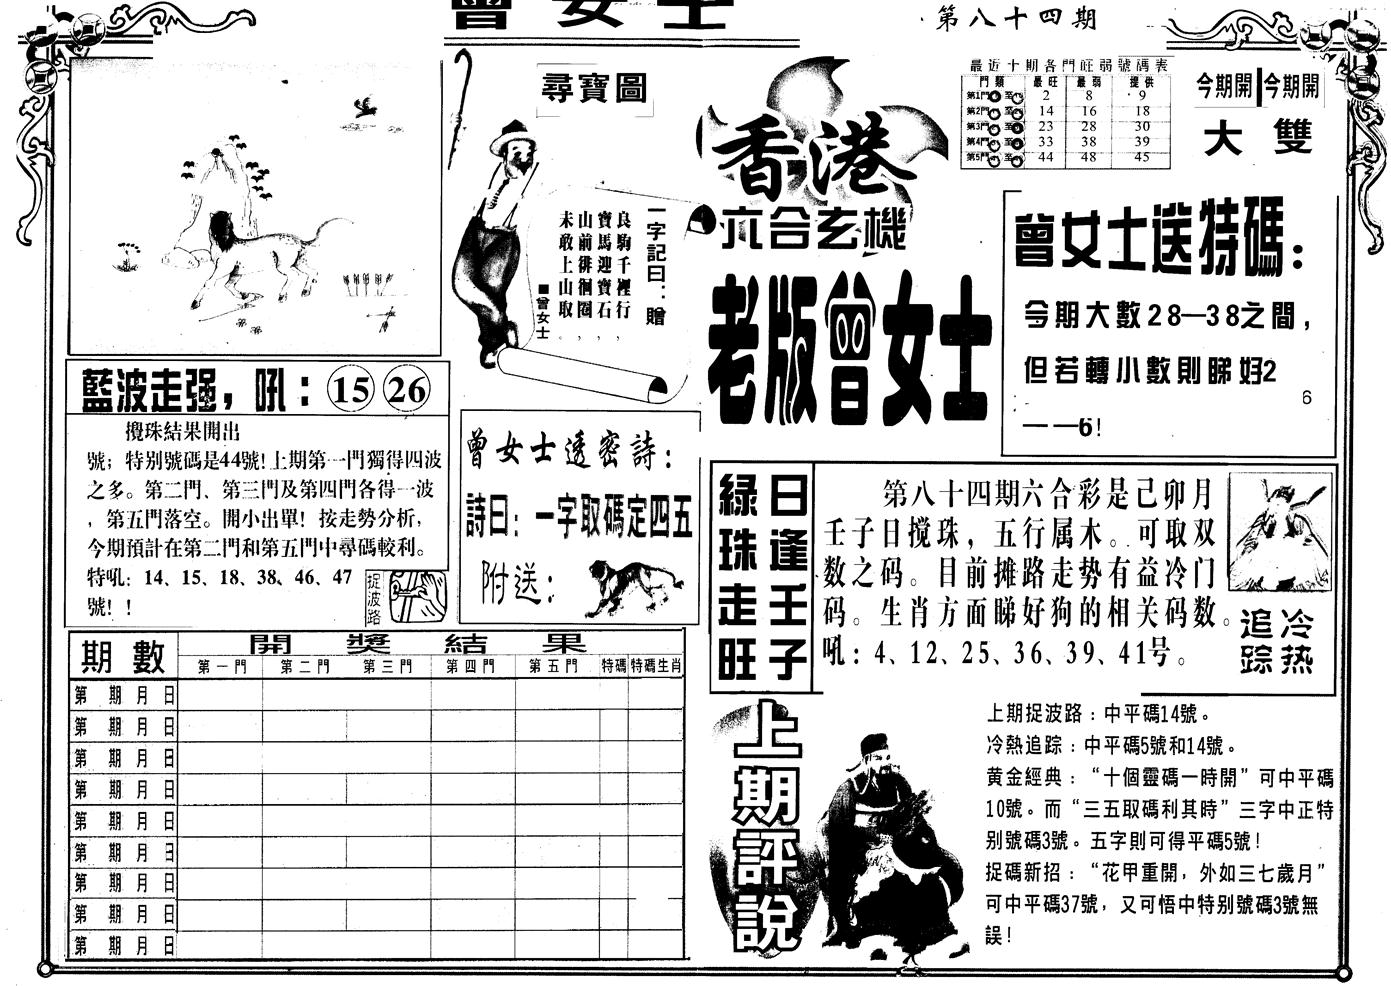 曾女士
第八十四期
尋寶圖
一字記曰：贈
良駒千裡行，
寶馬迎寶石，
山前徘徊圈，
未敢上山取。
■曾女士
香港
六合玄機
老版曾女士
最近十期各門旺弱號碼表
門類 最旺 最弱 提供
第1門 至 2 8 9
第2門 至 14 16 18
第3門 至 23 28 30
第4門 至 33 38 39
第5門 至 44 48 45
今期開 今期開
大 雙
曾女士送特碼：
今期大數28—38之間，
但若轉小數則睇好2
6
——6！
藍波走强，吼：15 26
攪珠結果開出
號；特别號碼是44號！上期第一門獨得四波
之多。第二門、第三門及第四門各得一波
，第五門落空。開小出單！按走勢分析，
今期預計在第二門和第五門中尋碼較利。
特吼：14、15、18、38、46、47
號！！
捉波路
曾女士透密詩：
詩曰：一字取碼定四五
附送：
綠珠走旺
日逢壬子
第八十四期六合彩是己卯月
壬子日搅珠，五行属木。可取双
数之码。目前摊路走势有益冷门
码。生肖方面睇好狗的相关码数。
吼：4、12、25、36、39、41号。
冷热
追踪
期數 開獎結果
第一門 第二門 第三門 第四門 第五門 特碼 特碼生肖
第 期 月 日
第 期 月 日
第 期 月 日
第 期 月 日
第 期 月 日
第 期 月 日
第 期 月 日
第 期 月 日
第 期 月 日
上期評說
上期捉波路：中平碼14號。
冷熱追踪：中平碼5號和14號。
黄金經典：“十個靈碼一時開”可中平碼
10號。而“三五取碼利其時”三字中正特
别號碼3號。五字則可得平碼5號！
捉碼新招：“花甲重開，外如三七歲月”
可中平碼37號，又可悟中特别號碼3號無
誤！